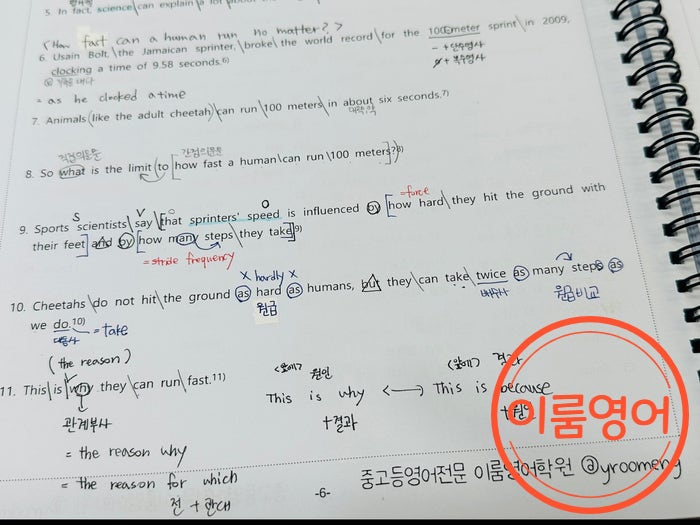 5. In fact, science\can explain a lot about
(How fast can a human run no matter? >
6. Usain Bolt,\the Jamaican sprinter,\broke\the world record\for the 100-meter sprint\in 2009,
- + 단수명사
clocking a time of 9.58 seconds.6)
+ 복수명사
= as he clocked a time
7. Animals(like the adult cheetah)\can run\100 meters\in about six seconds.7)
대략, 약
직접의문문 간접의문문
8. So what is the limit\to [how fast a human\can run\100 meters]?8)
S V O =force
9. Sports scientists\say\[that sprinters' speed is influenced by [how hard\they hit the ground with
their feet] and by [how many steps\they take]]9)
= stride frequency
x hardly x
10. Cheetahs\do not hit\the ground as hard as humans, but they\can take\twice as many steps as
원급 배수사 원급비교
we do.10) = take
대동사
(the reason)
11. This\is\why they\can run\fast.11)
관계부사
= the reason why
= the reason for which
전 + 관대
<앞에> 원인 <앞에> 결과
This is why <—> This is because
+결과 +원인
이룸영어
-6-
중고등영어전문 이룸영어학원 @yroomeng